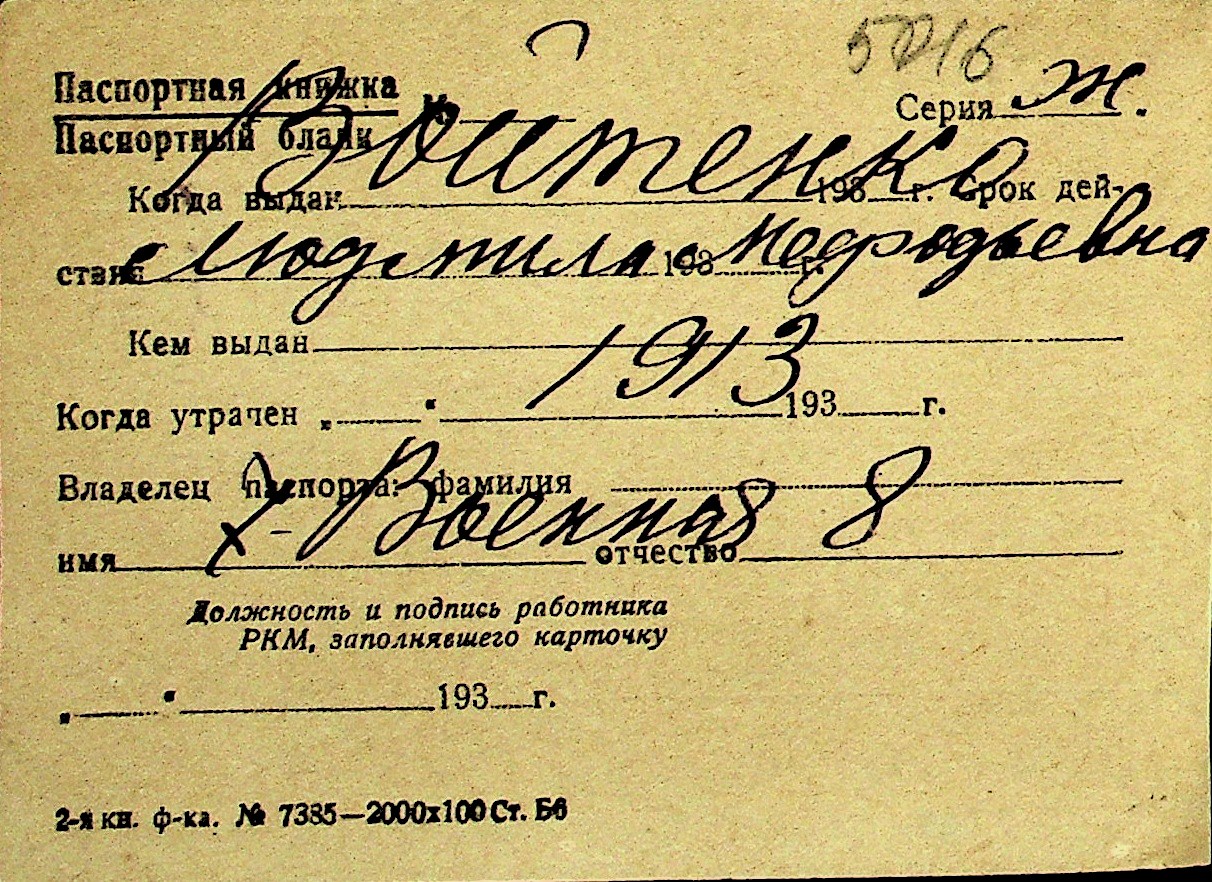 5716
Паспортная книжка
Паспортный бланк
№ Серия Ж.
Войтенко
Когда выдан 193 г. Срок дей-
Людмила Мефодьевна
ствия 193 г.
Кем выдан
1913
Когда утрачен „ “ 193 г.
Владелец паспорта: фамилия
х- Военная 8
имя отчество
Должность и подпись работника
РКМ, заполнявшего карточку
„ “ 193 г.
2-я кн. ф-ка. № 7385—2000х100 Ст. Б6